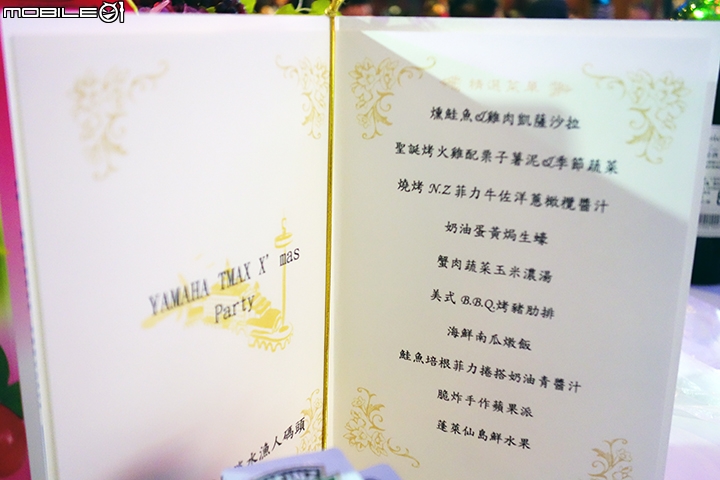 MOBILE01
YAMAHA TMAX X' mas
Party
淡水漁人碼頭
精選菜單
燻鮭魚&雞肉凱薩沙拉
聖誕烤火雞配栗子薯泥&季節蔬菜
燒烤 N.Z 菲力牛佐洋蔥橄欖醬汁
奶油蛋黃焗生蠔
蟹肉蔬菜玉米濃湯
美式 B.B.Q 烤豬肋排
海鮮南瓜燉飯
鮭魚培根菲力捲搭奶油青醬汁
脆炸手作蘋果派
蓬萊仙島鮮水果